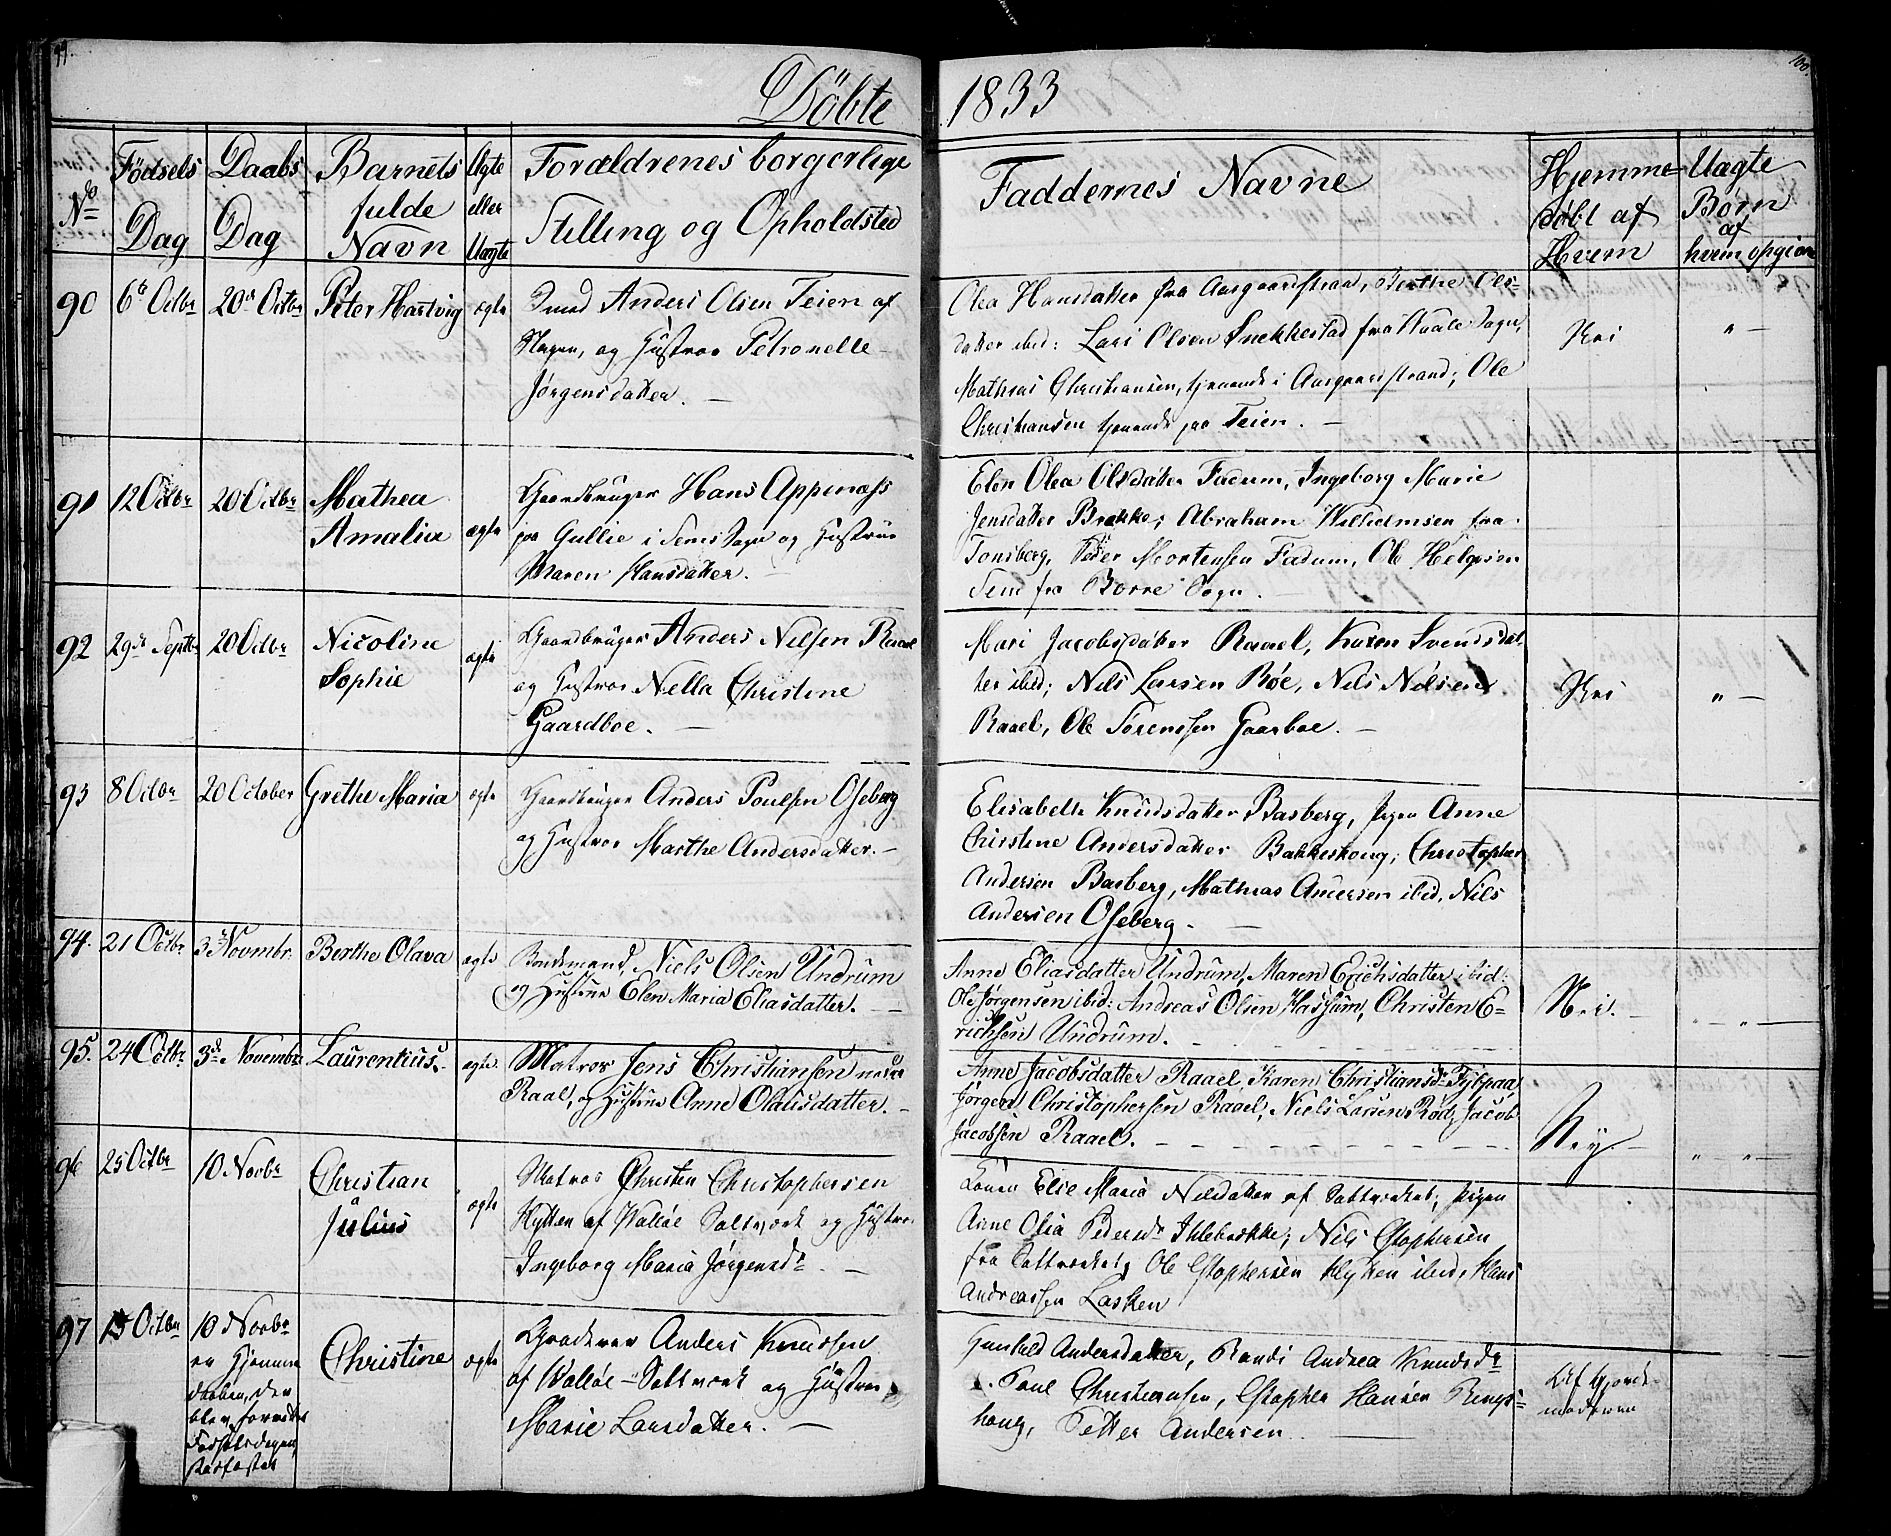 99.
Döbte 1833
100.
No
Födsels Dag
Daabs Dag
Barnets fulde Navn
Ægte eller Uægte
Forældrenes borgerlige Stilling og Opholdsted
Faddernes Navne
Hjemme-døbt af Hvem
Uægte Børn af hvem opgiven
90 6te Octbr 20de Octbr Peter Hartvig ægte
Smed Anders Olsen Teien af
Slagen, og Hustroe Petronelle
Jørgensdatter. —
Olea Hansdatter fra Aasgaardstrand, Berthe Ols-
datter ibid: Lars Olsen Snekkestad fra Vaale Sogn,
Mathias Christiansen, tjenende i Aasgaardstrand; Ole
Christiansen tjenende paa Teien. —
Nei
" —
91 12 Octbr 20 Octbr Mathea
Amalia ægte
Gaardbruger Hans Appenæss
paa Gullie i Sems Sogn og Hustrue
Maren Hansdatter. —
Elen Olea Olsdatter Fadum, Ingeborg Marie
Jensdatter Brekke; Abraham Wilhelmsen fra
Tonsberg, Peder Mortensen Fadum, Ole Helgesen
Sem fra Borre Sogn. —
92 29de Septbr 20 Octbr Nicoline
Sophie ægte
Gaardbruger Anders Nilsen Raael
og Hustroe Nella Christine
Gaardboe. —
Mari Jacobsdatter Raael, Karen Svendsdat-
ter ibid; Nils Larsen Røe, Nils Nilsen
Raael, Ole Sørenssen Gaarboe. —
Nei
" —
93 8 Octbr 20 October Grethe Maria ægte
Gaardbruger Anders Poulsen Oseberg
og Hustroe Marthe Andersdatter. —
Elisabeth Knudsdatter Basberg, Pigen Anne
Christine Andersdatter Bakkeskoug; Christopher
Andersen Basberg, Mathias Andersen ibid, Nils
Andersen Oseberg. —
94. 21 Octbr. 3de Novmbr. Berthe Olava ægte
Bondemand, Niels Olsen Undrum
og Hustrue Elen Maria Eliasdatter. —
Anne Eliasdatter Undrum, Maren Erichsdatter ibid:
Ole Jørgensen ibid: Andreas Olsen Hassum, Christen E-
richsen Undrum.
Nei. —
— " —
95. 24 Octbr. 3de Novembr. Laurentius. ægte.
Matros Jens Christiansen
Raal, og Hustrue Anne Olausdatter. —
Anne Jacobsdatter Raael, Karen Christiansdr
Jørgen Christophersen Raael, Niels Larsen Rød, Jacob
Jacobsen Raael. —
Nej. —
" — " —
96 25 Octbr 10 Novbr Christian
Julius ægte
Matros Christen Christophersen
Hytten af Walløe Saltværk og Hustroe
Ingeborg Maria Jørgensdr. —
Konen Else Maria Nilsdatter af Saltværket; Pigen
Anne Olia Pedersdr Ihlebrække; Nils Cstophersen
fra Saltværket; Ole Cstophersen Hytten ibid, Hans
Andreassen Lasken
97 15 Octbr 10 Novbr
en Hjemme
daaben, der
blev forrettet
Fødselsdagen,
stadfæstet
Christine ægte
Anders Knudsen
af Walløe Saltværk og Hustroe
Marie Larsdatter. —
Gunhild Andersdatter, Randi Andrea Knudsdr
Poul Christiansen, Cstopher Hansen Rings-
houg, Petter Andersen. —
Af Gjorde-
moderen